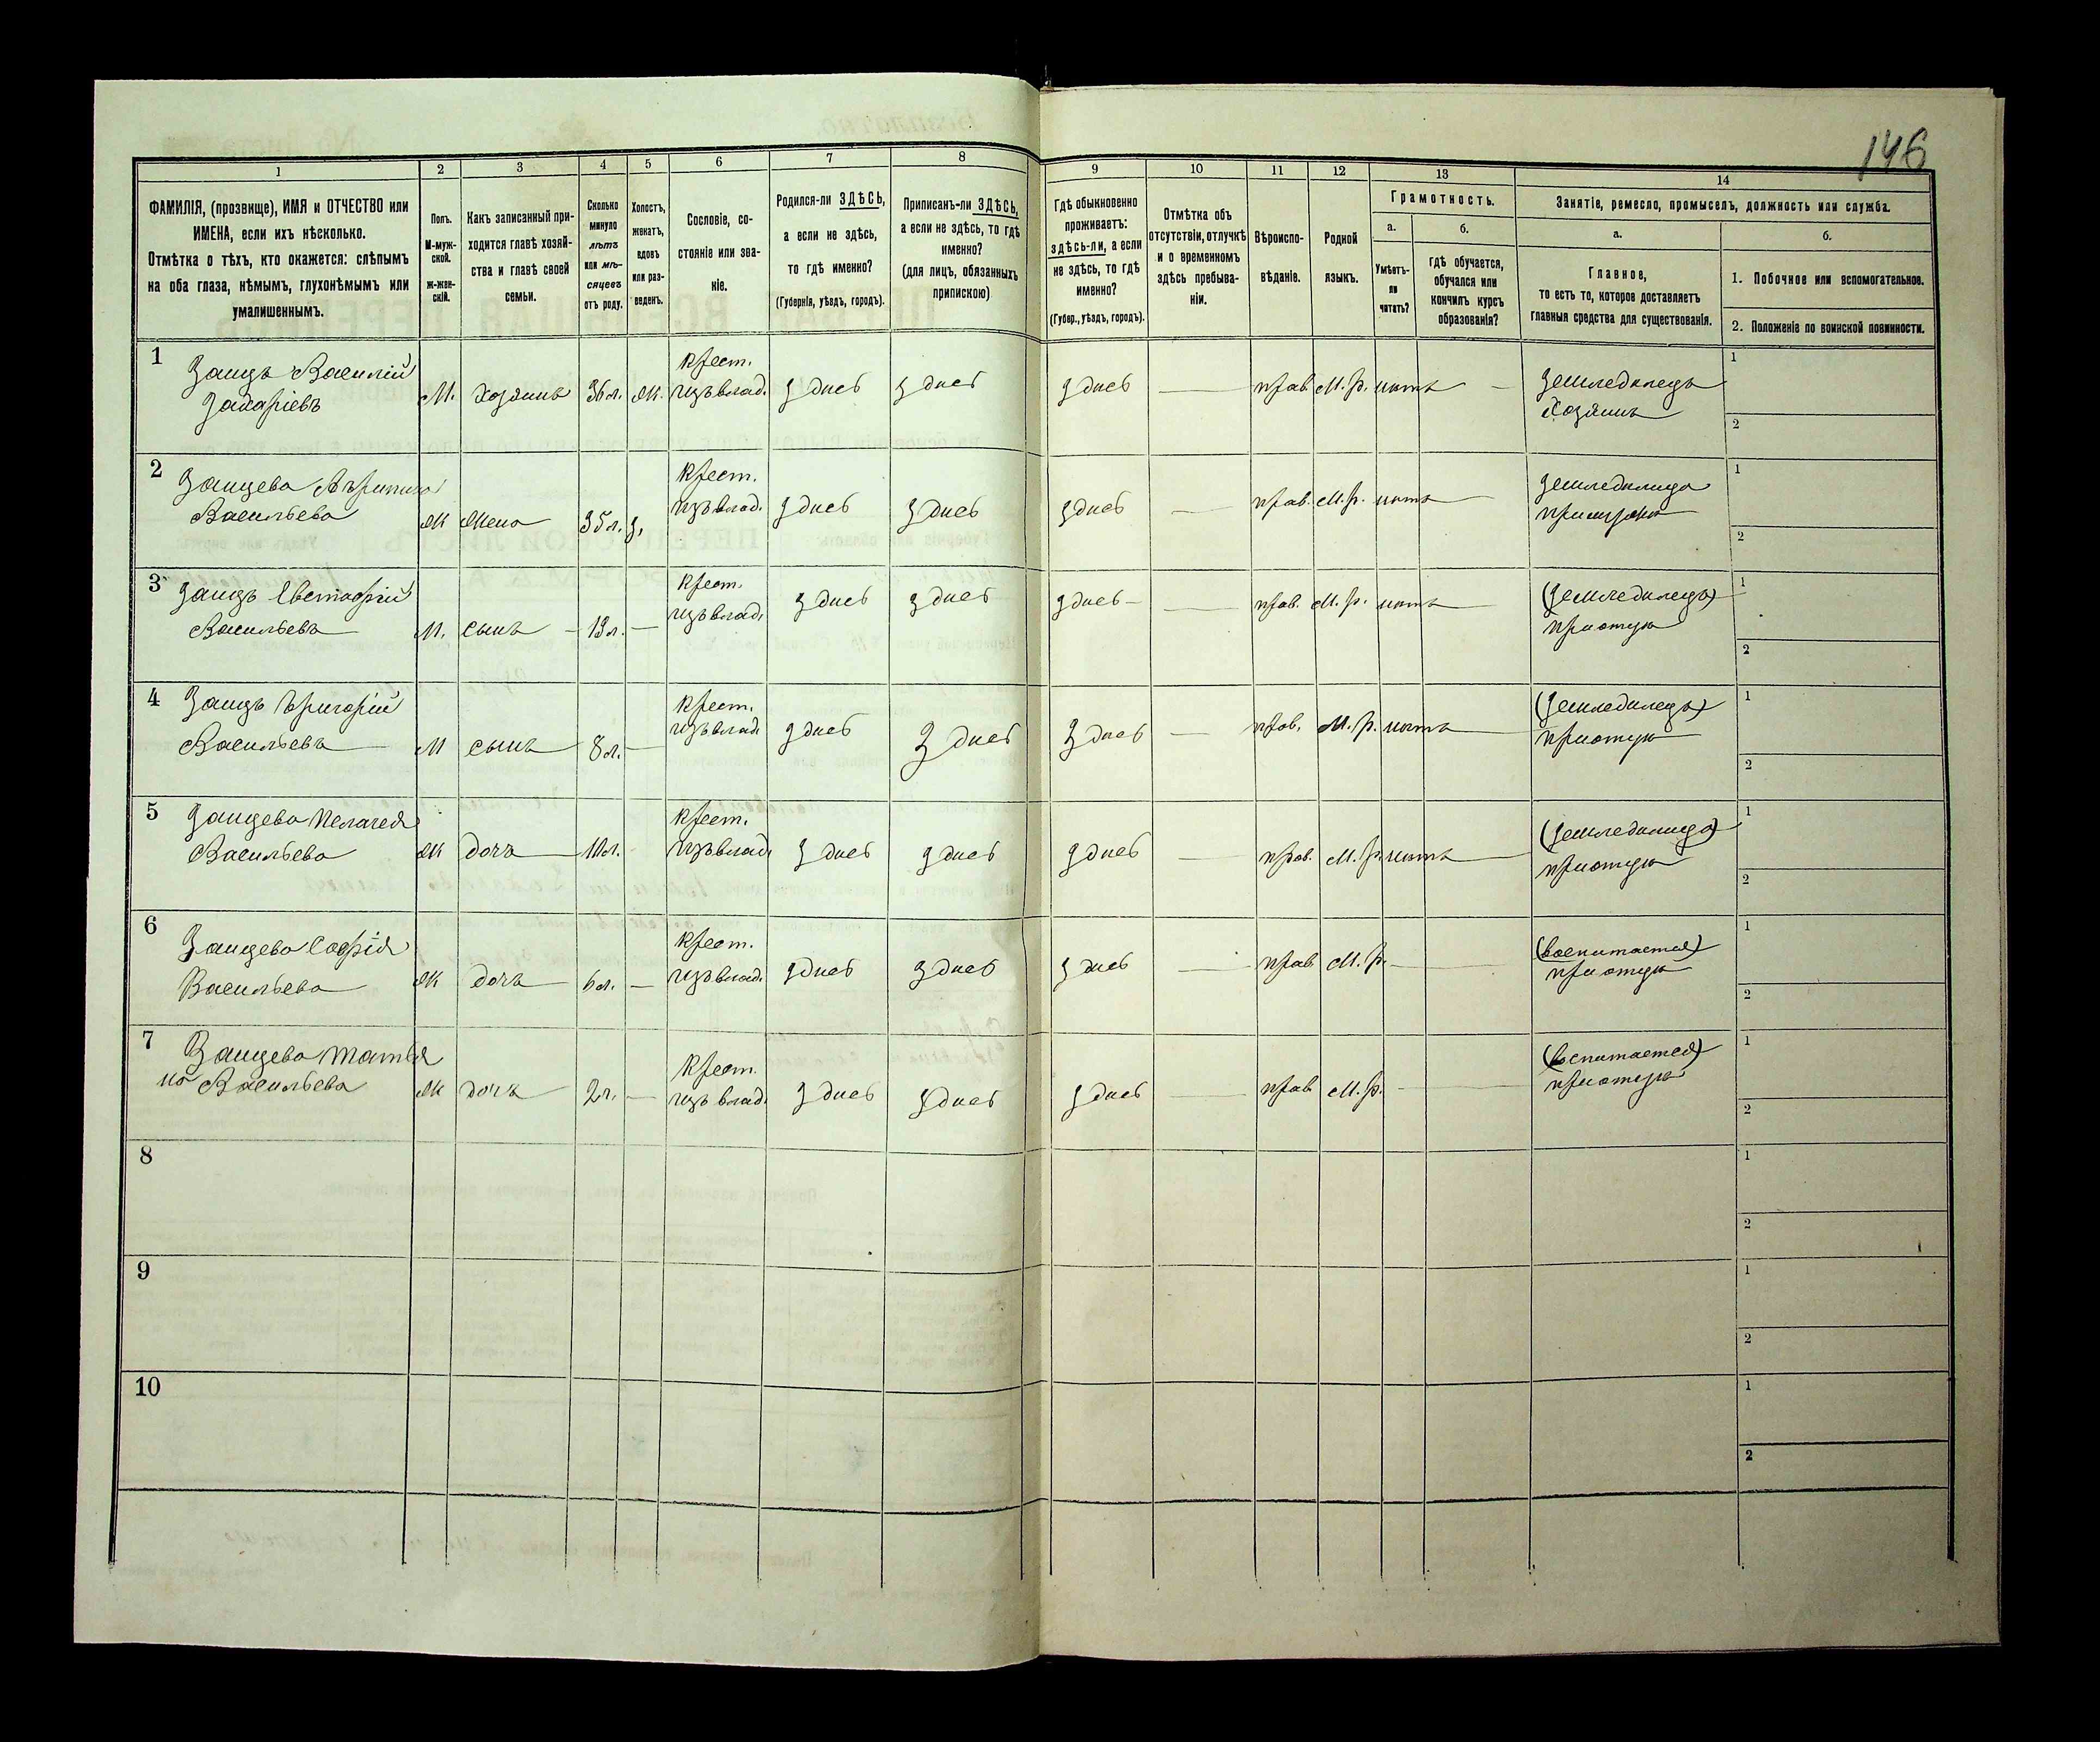 146
1 2 3 4 5 6 7 8 9 10 11 12 13 14
ФАМИЛІЯ, (прозвище), ИМЯ и ОТЧЕСТВО или
ИМЕНА, если ихъ нѣсколько.
Отмѣтка о тѣхъ, кто окажется: слѣпымъ
на оба глаза, нѣмымъ, глухонѣмымъ или
умалишеннымъ.
Полъ.
М-муж-
ской.
Ж-жен-
скій.
Какъ записанный при-
ходится главѣ хозяй-
ства и главѣ своей
семьи.
Сколько
минуло
лѣтъ
или мѣ-
сяцевъ
отъ роду.
Холостъ,
женатъ,
вдовъ
или раз-
веденъ.
Сословіе, со-
стояніе или зва-
ніе.
Родился-ли ЗДѢСЬ,
а если не здѣсь,
то гдѣ именно?
(Губернія, уѣздъ, городъ).
Приписанъ-ли ЗДѢСЬ,
а если не здѣсь, то гдѣ
именно?
(для лицъ, обязанныхъ
припискою)
Гдѣ обыкновенно
проживаетъ:
здѣсь-ли, а если
не здѣсь, то гдѣ
именно?
(Губер., уѣздъ, городъ).
Отмѣтка объ
отсутствіи, отлучкѣ
и о временномъ
здѣсь пребыва-
ніи.
Вѣроиспо-
вѣданіе.
Родной
языкъ.
Грамотность.
а.
Умѣетъ-
ли
читать?
б.
гдѣ обучается,
обучался или
кончилъ курсъ
образованія?
Занятіе, ремесло, промыселъ, должность или служба.
а.
Главное,
то есть то, которое доставляетъ
главныя средства для существованія.
б.
1. Побочное или вспомогательное.
2. Положеніе по воинской повинности.
1
Заицъ Василій
Захаріевъ
М. Хозяинъ 36 л. Ж.
Крест.
изъ влад.
здѣсь здѣсь здѣсь — прав. М. р. нѣтъ —
земледѣлецъ
Хозяинъ
1
2
2
Заицева
Васильева
Ж Жена 35 л. З.
Крест.
изъ влад.
здѣсь здѣсь здѣсь прав. М. р. нѣтъ —
земледѣлица
при мужѣ
1
2
3
Заицъ Евстафій
Васильевъ
М. сынъ — 13 л. —
Крест.
изъ влад.
здѣсь здѣсь здѣсь — — прав. М. р. нѣтъ —
(земледѣлецъ)
при отцѣ
1
2
4
Заицъ Григорій
Васильевъ
М сынъ 8 л. —
Крест.
изъ влад.
здѣсь здѣсь здѣсь — прав. М. р. нѣтъ —
(земледѣлецъ)
при отцѣ
1
2
5
Заицева Пелагея
Васильева
Ж дочь — 10 л.
Крест.
изъ влад.
здѣсь здѣсь здѣсь — прав. М. р. нѣтъ —
(земледѣлица)
при отцѣ
1
2
6
Заицева Софія
Васильева
Ж дочь — 6 л. —
Крест.
изъ влад.
здѣсь здѣсь здѣсь — прав. М. р. —
(воспитается)
при отцѣ
1
2
7
Заицева Татья
на Васильева
Ж дочь 2 г. —
Крест.
изъ влад.
здѣсь здѣсь здѣсь — прав. М. р. —
(воспитается)
при отцѣ
1
2
8
1
2
9
1
2
10
1
2